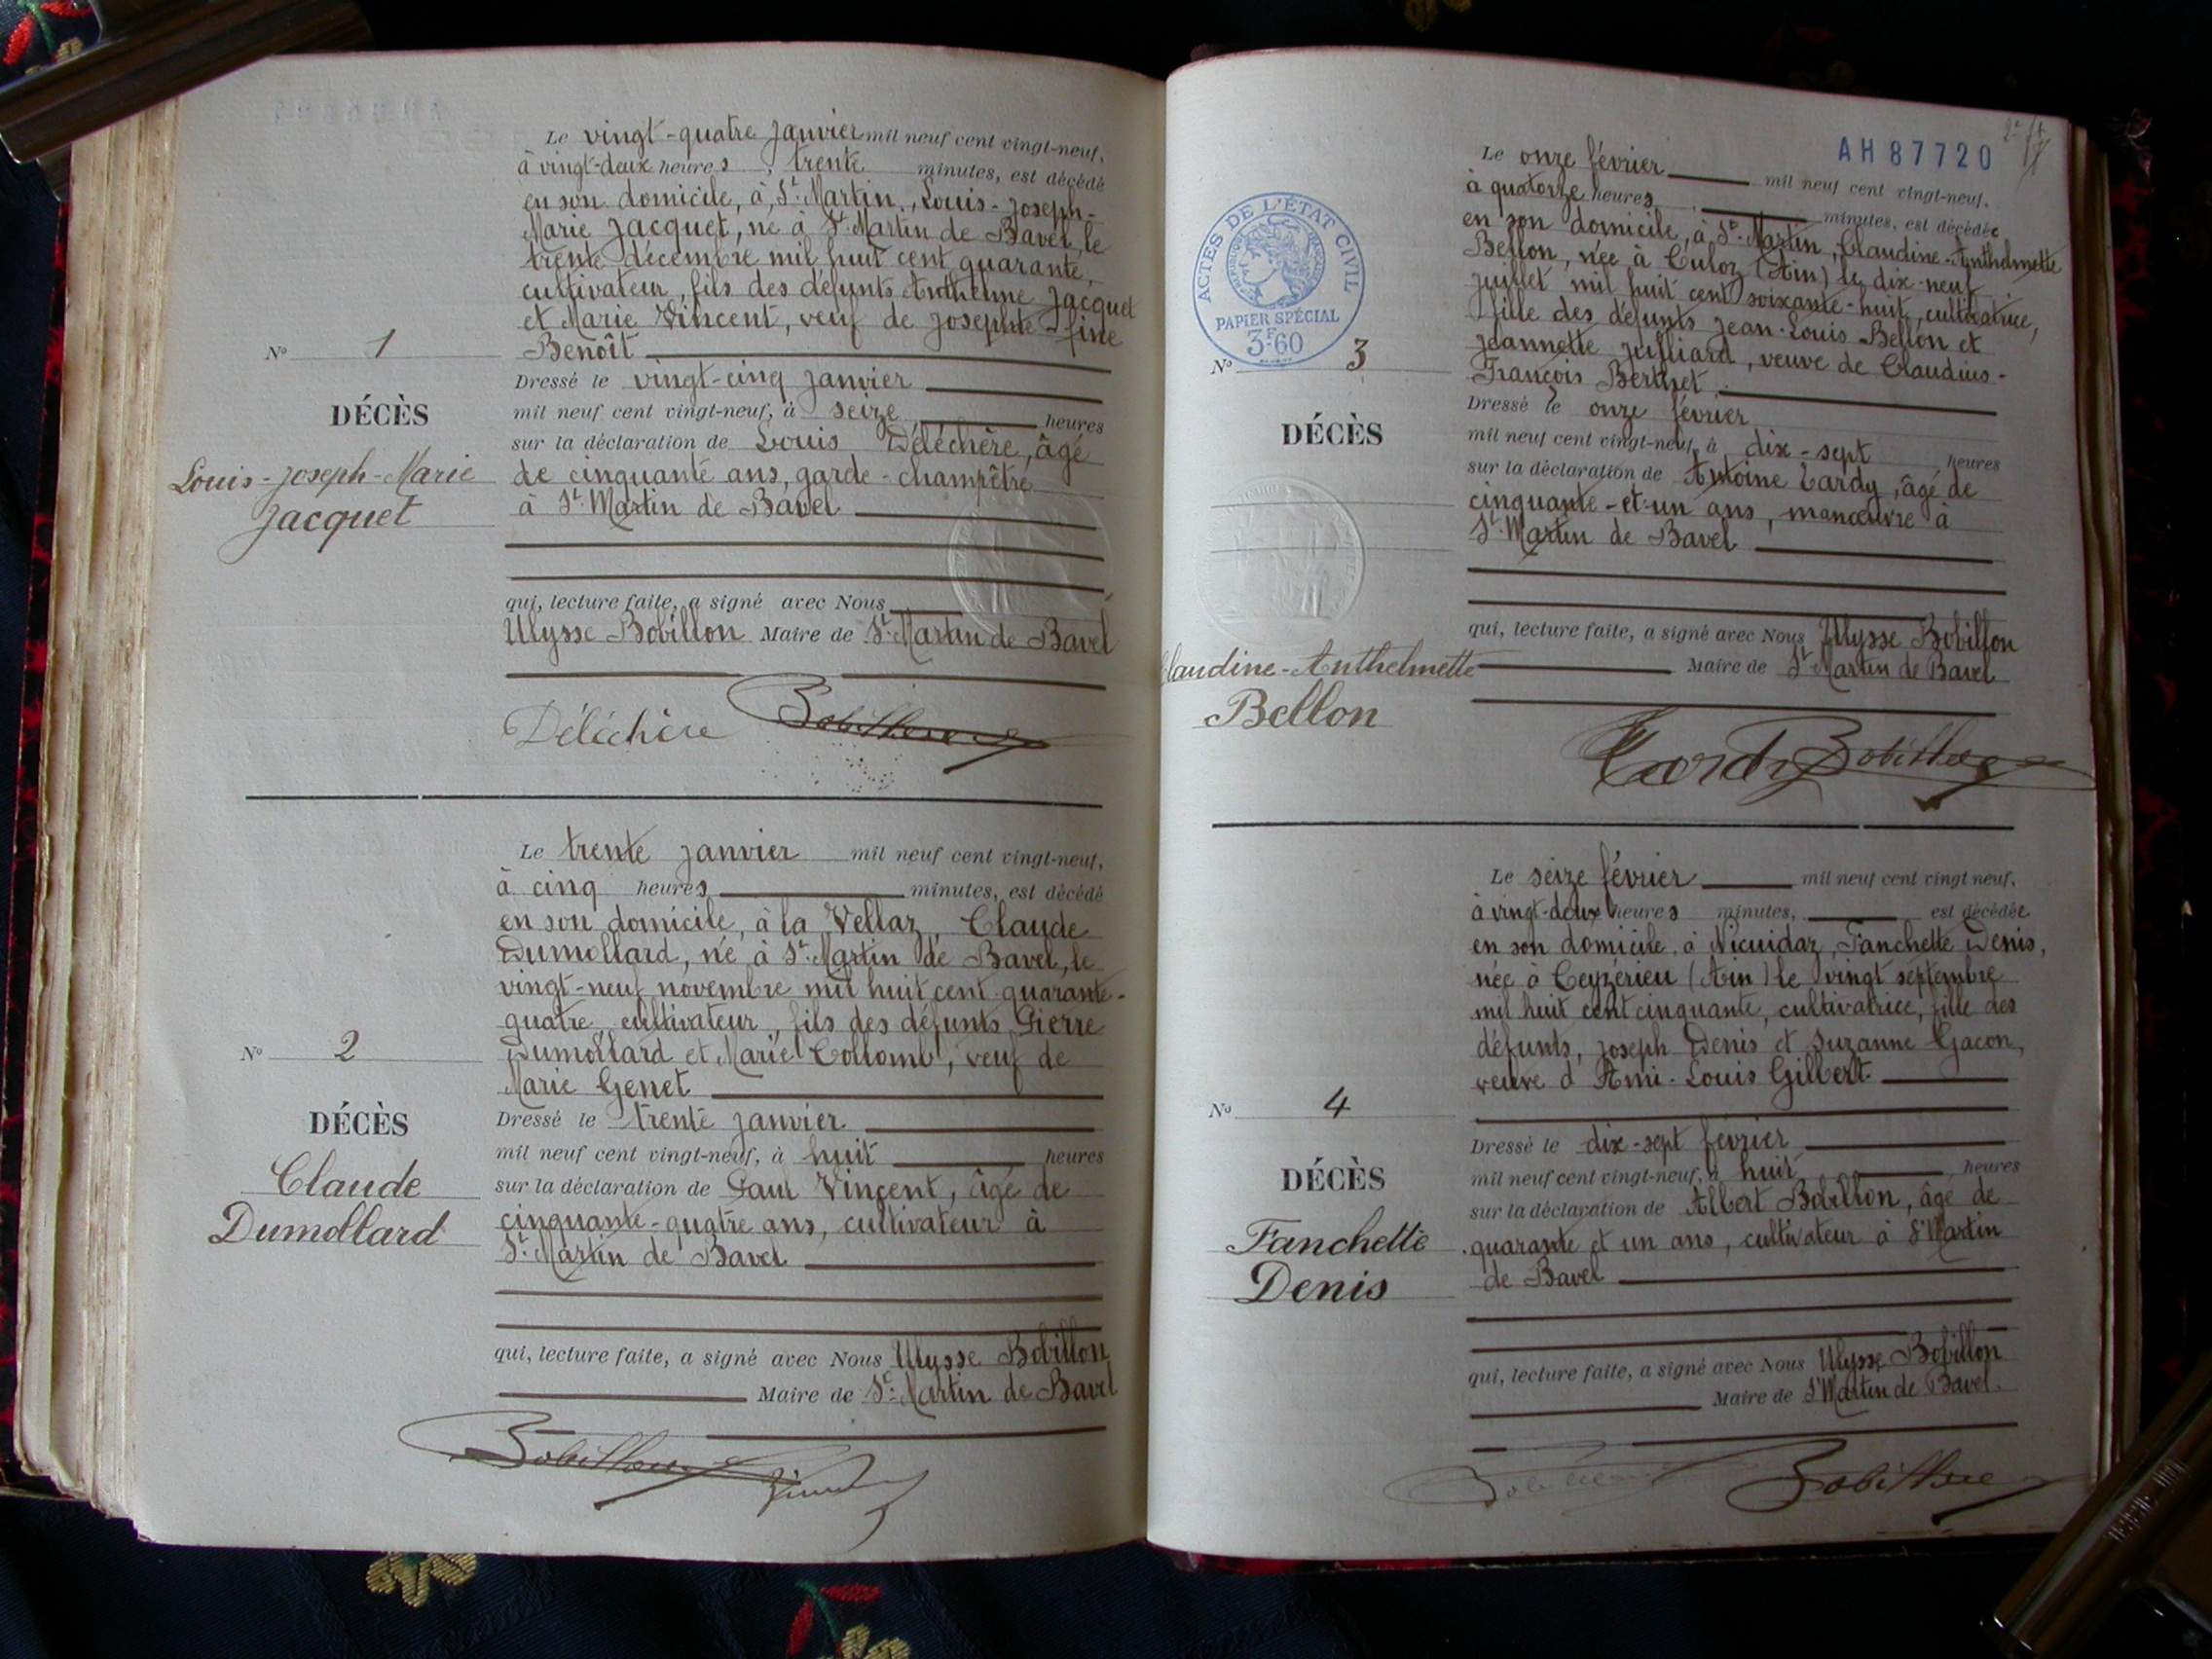 Le vingt-quatre janvier mil neuf cent vingt-neuf,
à vingt-deux heures, trente minutes, est décédé
en son domicile, à St. Martin, Louis-Joseph-
Marie Jacquet, né à St. Martin de Bavel, le
trente décembre mil huit cent quarante,
cultivateur, fils des défunts Anthelme Jacquet
et Marie Vincent, veuf de Josephte-fine
Benoît
No 1
Dressé le vingt-cinq janvier
DÉCÈS
mil neuf cent vingt-neuf, à seize heures
sur la déclaration de Louis Déléchère, âgé
Louis-Joseph-Marie
Jacquet
de cinquante ans, garde-champêtre
à St. Martin de Bavel
qui, lecture faite, a signé avec Nous
Ulysse Bobillon Maire de St. Martin de Bavel
Déléchère Bobillon
Le trente janvier mil neuf cent vingt-neuf,
à cinq heures minutes, est décédé
en son domicile, à la Vellaz, Claude
Dumollard, né à St. Martin de Bavel, le
vingt-neuf novembre mil huit cent quarante-
quatre, cultivateur, fils des défunts Pierre
Dumollard et Marie Collomb, veuf de
Marie Genet
No 2
DÉCÈS
Dressé le trente janvier
mil neuf cent vingt-neuf, à huit heures
Claude
Dumollard
sur la déclaration de Paul Vincent, âgé de
cinquante-quatre ans, cultivateur à
St. Martin de Bavel
qui, lecture faite, a signé avec Nous Ulysse Bobillon
Maire de St. Martin de Bavel
Bobillon Vincent
AH 87720
Le onze février mil neuf cent vingt-neuf,
à quatorze heures minutes, est décédée
en son domicile, à St. Martin, Claudine-Anthelmette
Bellon, née à Culoz (Ain) le dix-neuf
juillet mil huit cent soixante-huit, cultivatrice,
fille des défunts Jean-Louis Bellon et
Jeannette Julliard, veuve de Claudius-
François Berthet
ACTES DE L'ÉTAT CIVIL
RÉPUBLIQUE FRANÇAISE
PAPIER SPÉCIAL
3F60
No 3
DÉCÈS
Dressé le onze février
mil neuf cent vingt-neuf, à dix-sept heures
sur la déclaration de Antoine Tardy, âgé de
cinquante-et-un ans, manœuvre à
St. Martin de Bavel
qui, lecture faite, a signé avec Nous Ulysse Bobillon
Maire de St. Martin de Bavel
Claudine-Anthelmette
Bellon
Tardy Bobillon
Le seize février mil neuf cent vingt neuf,
à vingt-deux heures minutes, est décédée
en son domicile à Nicuidaz, Fanchette Denis,
née à Ceyzérieu (Ain) le vingt septembre
mil huit cent cinquante, cultivatrice, fille des
défunts, Joseph Denis et Suzanne Gacon,
veuve d'Ami-Louis Gilbert.
No 4
DÉCÈS
Dressé le dix-sept février
mil neuf cent vingt-neuf, à huit heures
sur la déclaration de Albert Bobillon, âgé de
Fanchette
Denis
quarante et un ans, cultivateur à St Martin
de Bavel
qui, lecture faite, a signé avec Nous Ulysse Bobillon
Maire de St Martin de Bavel.
Bobillon Bobillon